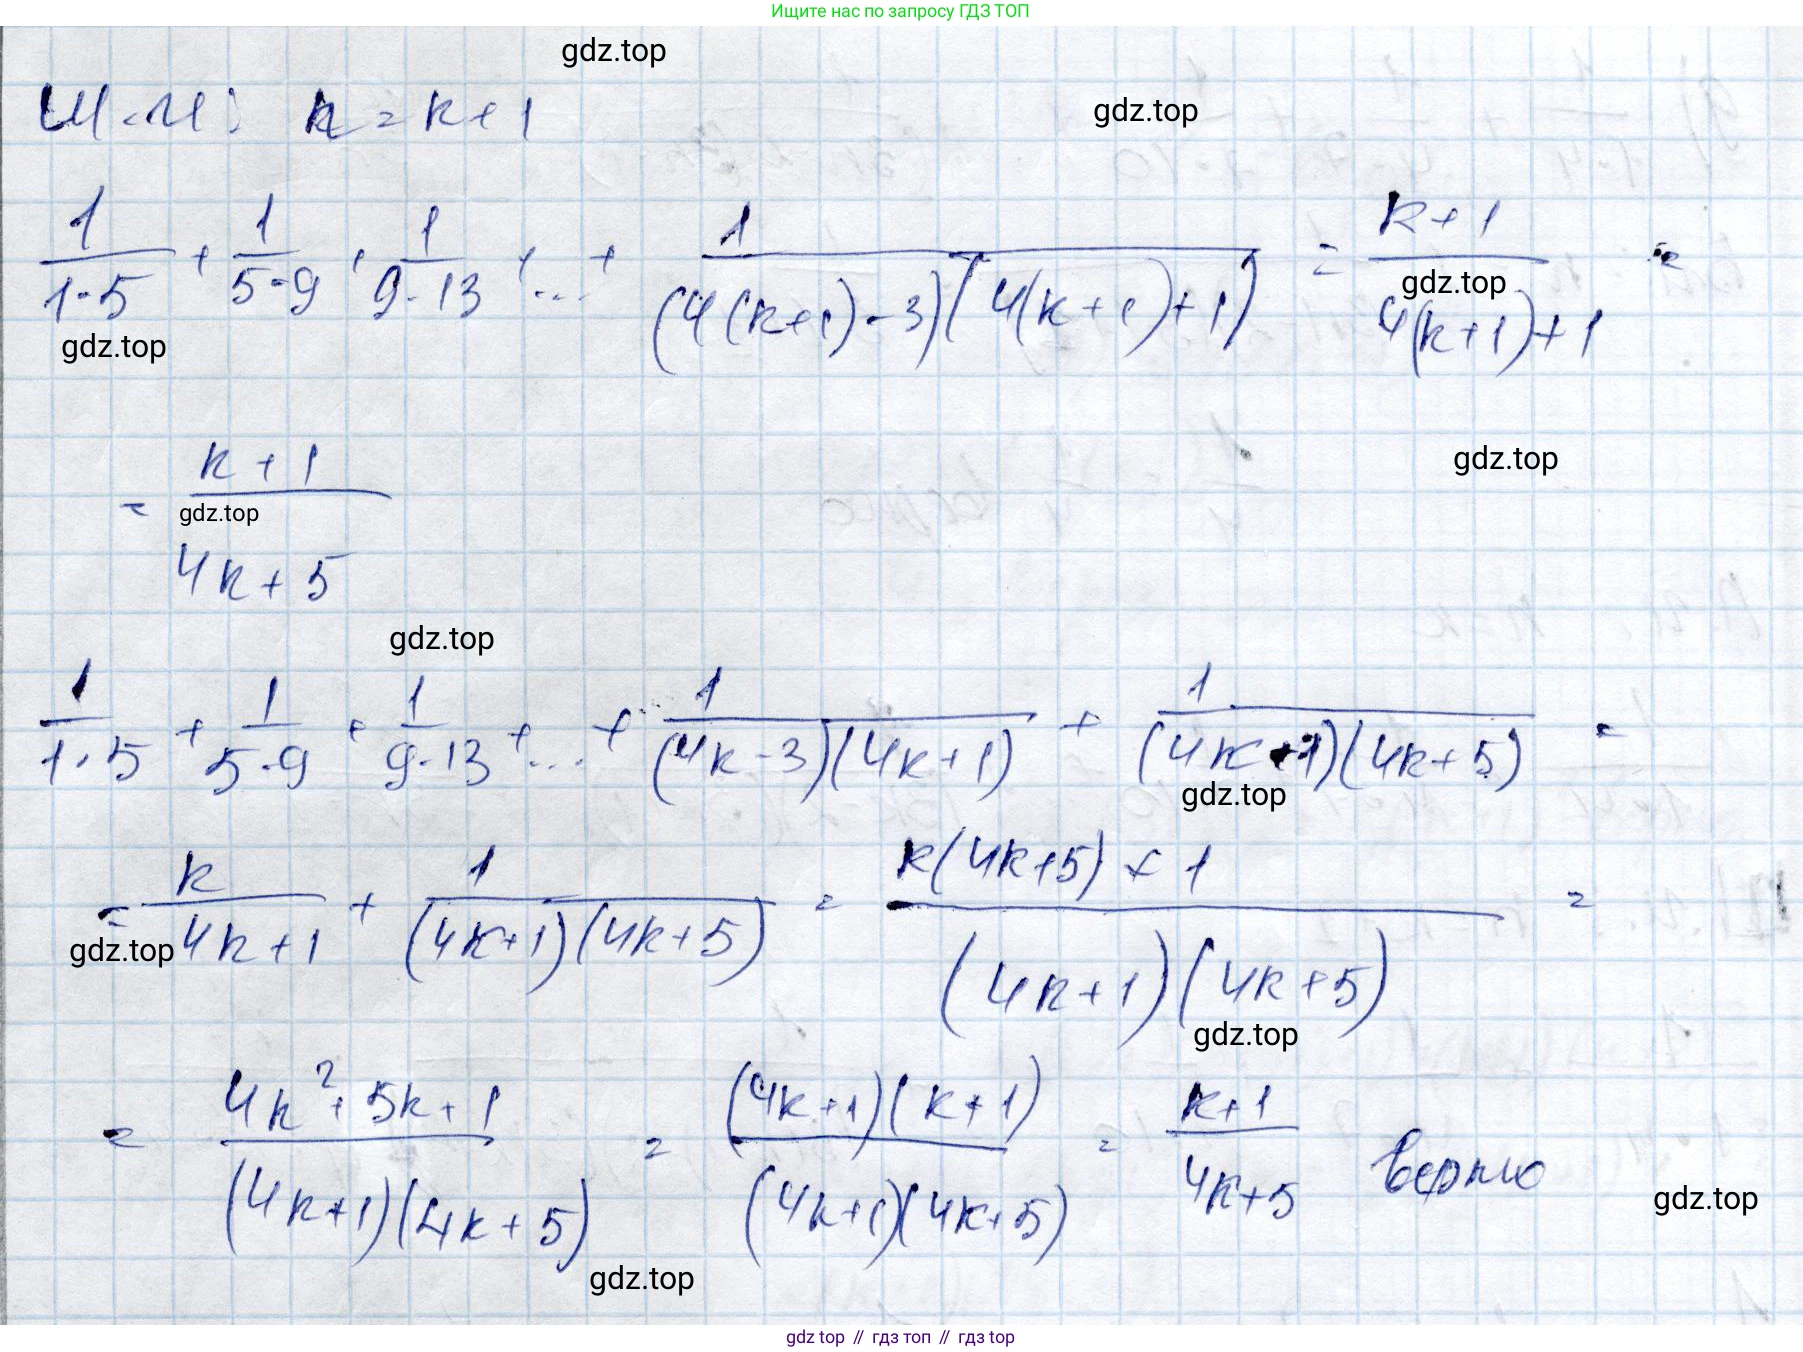 Ищите нас по запросу ГДЗ ТОП
gdz.top
Ш.И: n = k+1
gdz.top
1/(1·5) + 1/(5·9) + 1/(9·13) + ... + 1/((4(k+1)-3)(4(k+1)+1)) = (k+1)/(4(k+1)+1) =
gdz.top
gdz.top
= (k+1)/(4k+5)
gdz.top
gdz.top
gdz.top
1/(1·5) + 1/(5·9) + 1/(9·13) + ... + 1/((4k-3)(4k+1)) + 1/((4k+1)(4k+5)) =
gdz.top
= k/(4k+1) + 1/((4k+1)(4k+5)) = (k(4k+5)+1)/((4k+1)(4k+5)) =
gdz.top
gdz.top
= (4k²+5k+1)/((4k+1)(4k+5)) = ((4k+1)(k+1))/((4k+1)(4k+5)) = (k+1)/(4k+5) верно
gdz.top
gdz.top
gdz top // гдз топ // гдз top